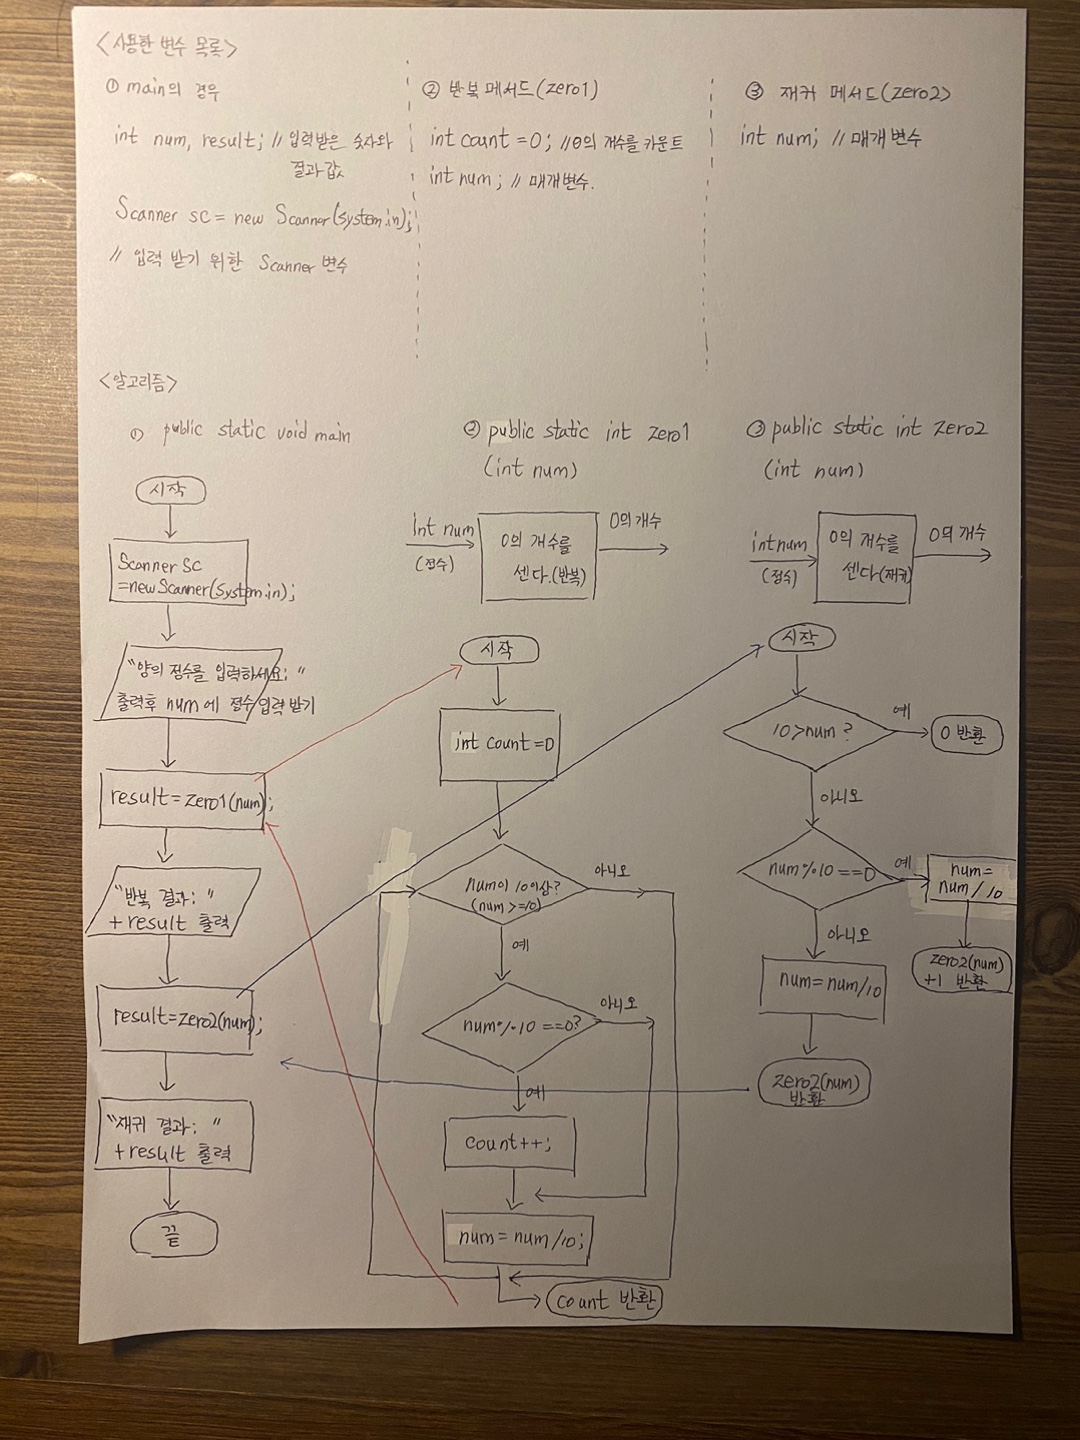 <사용한 변수 목록>
① main의 경우
int num, result; // 입력받은 숫자와
결과값
Scanner sc = new Scanner(system.in);
// 입력 받기 위한 Scanner 변수
② 반복 메서드(zero1)
int count = 0; // 0의 개수를 카운트
int num; // 매개변수.
③ 재귀 메서드(zero2)
int num; // 매개변수
<알고리즘>
① public static void main
시작
Scanner sc
=new Scanner(System.in);
"양의 정수를 입력하세요: "
출력후 num에 정수 입력 받기
result=zero1(num);
"반복 결과: "
+ result 출력
result=zero2(num);
"재귀 결과: "
+ result 출력
끝
② public static int zero1
(int num)
int num
(정수)
0의 개수를
센다.(반복)
0의 개수
시작
int count=0
num이 10이상?
(num >=10)
아니오
예
num%10 ==0?
아니오
예
count++;
num = num/10;
count 반환
③ public static int zero2
(int num)
int num
(정수)
0의 개수를
센다(재귀)
0의 개수
시작
10>num?
예
0 반환
아니오
num%10 ==0
예
num=
num/10
zero2(num)
+1 반환
아니오
num=num/10
zero2(num)
반환